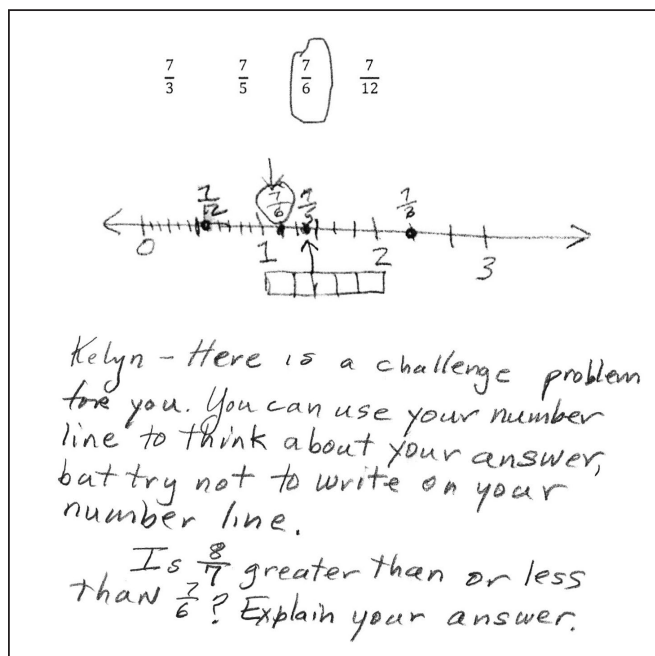 7/3 7/5 7/6 7/12
7/12 7/6 7/5 7/3
0 1 2 3
Kelyn - Here is a challenge problem
for you. You can use your number
line to think about your answer,
but try not to write on your
number line.
Is 8/7 greater than or less
than 7/6? Explain your answer.